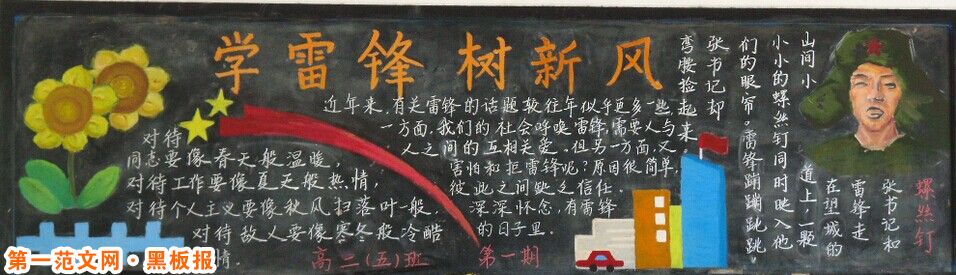 学雷锋 树新风
对待
同志要像春天般温暖,
对待工作要像夏天般热情,
对待个人主义要像秋风扫落叶一般,
对待敌人要像寒冬般冷酷
情。
近年来,有关雷锋的话题较往年似乎更多一些,
一方面,我们的社会呼唤雷锋,需要人与
人之间的互相关爱。但另一方面,又
害怕和拒雷锋呢?原因很简单,
彼此之间缺乏信任。
深深怀念,有雷锋
的日子里。
螺丝钉
张书记和
雷锋走
在望城的
山间小道上,颗
小小的螺丝钉同时映入他
们的眼帘。雷锋蹦蹦跳跳
张书记却
弯腰捡起来。
高二(五)班 第一期
第一范文网·黑板报